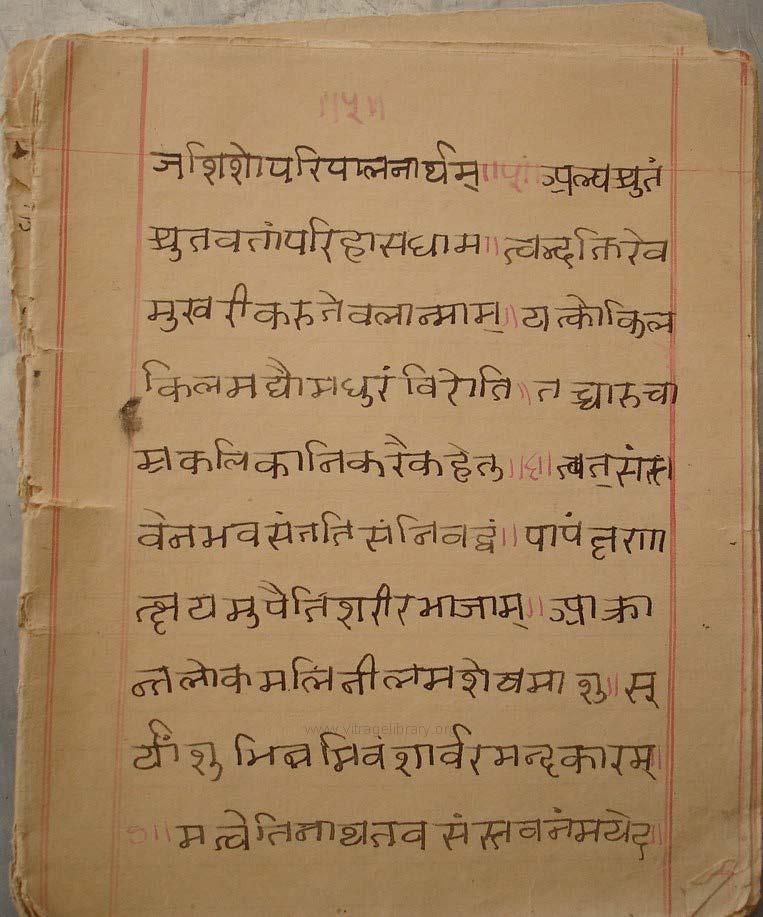 ॥५॥
जशिशोःपरिपालनार्थम्॥५॥अल्पश्रुतं
श्रुतवतांपरिहासधाम॥त्वद्भक्तिरेव
मुखरीकुरुतेबलान्माम्॥यत्कोकिल
किलमधौमधुरंविरौति॥तच्चारुचा
म्रकलिकानिकरैकहेतु॥६॥त्वत्संस्त
वेनभवसंततिसंनिबद्धं॥पापंक्षणा
त्क्षयमुपैतिशरीरभाजाम्॥आक्रा
न्तलोकमलिनीलमशेषमाशु॥सू
र्यांशुभिन्नमिवशार्वरमन्धकारम्॥
७॥मत्वेतिनाथतवसंस्तवनंमयेद॥
www.vitragelibrary.org